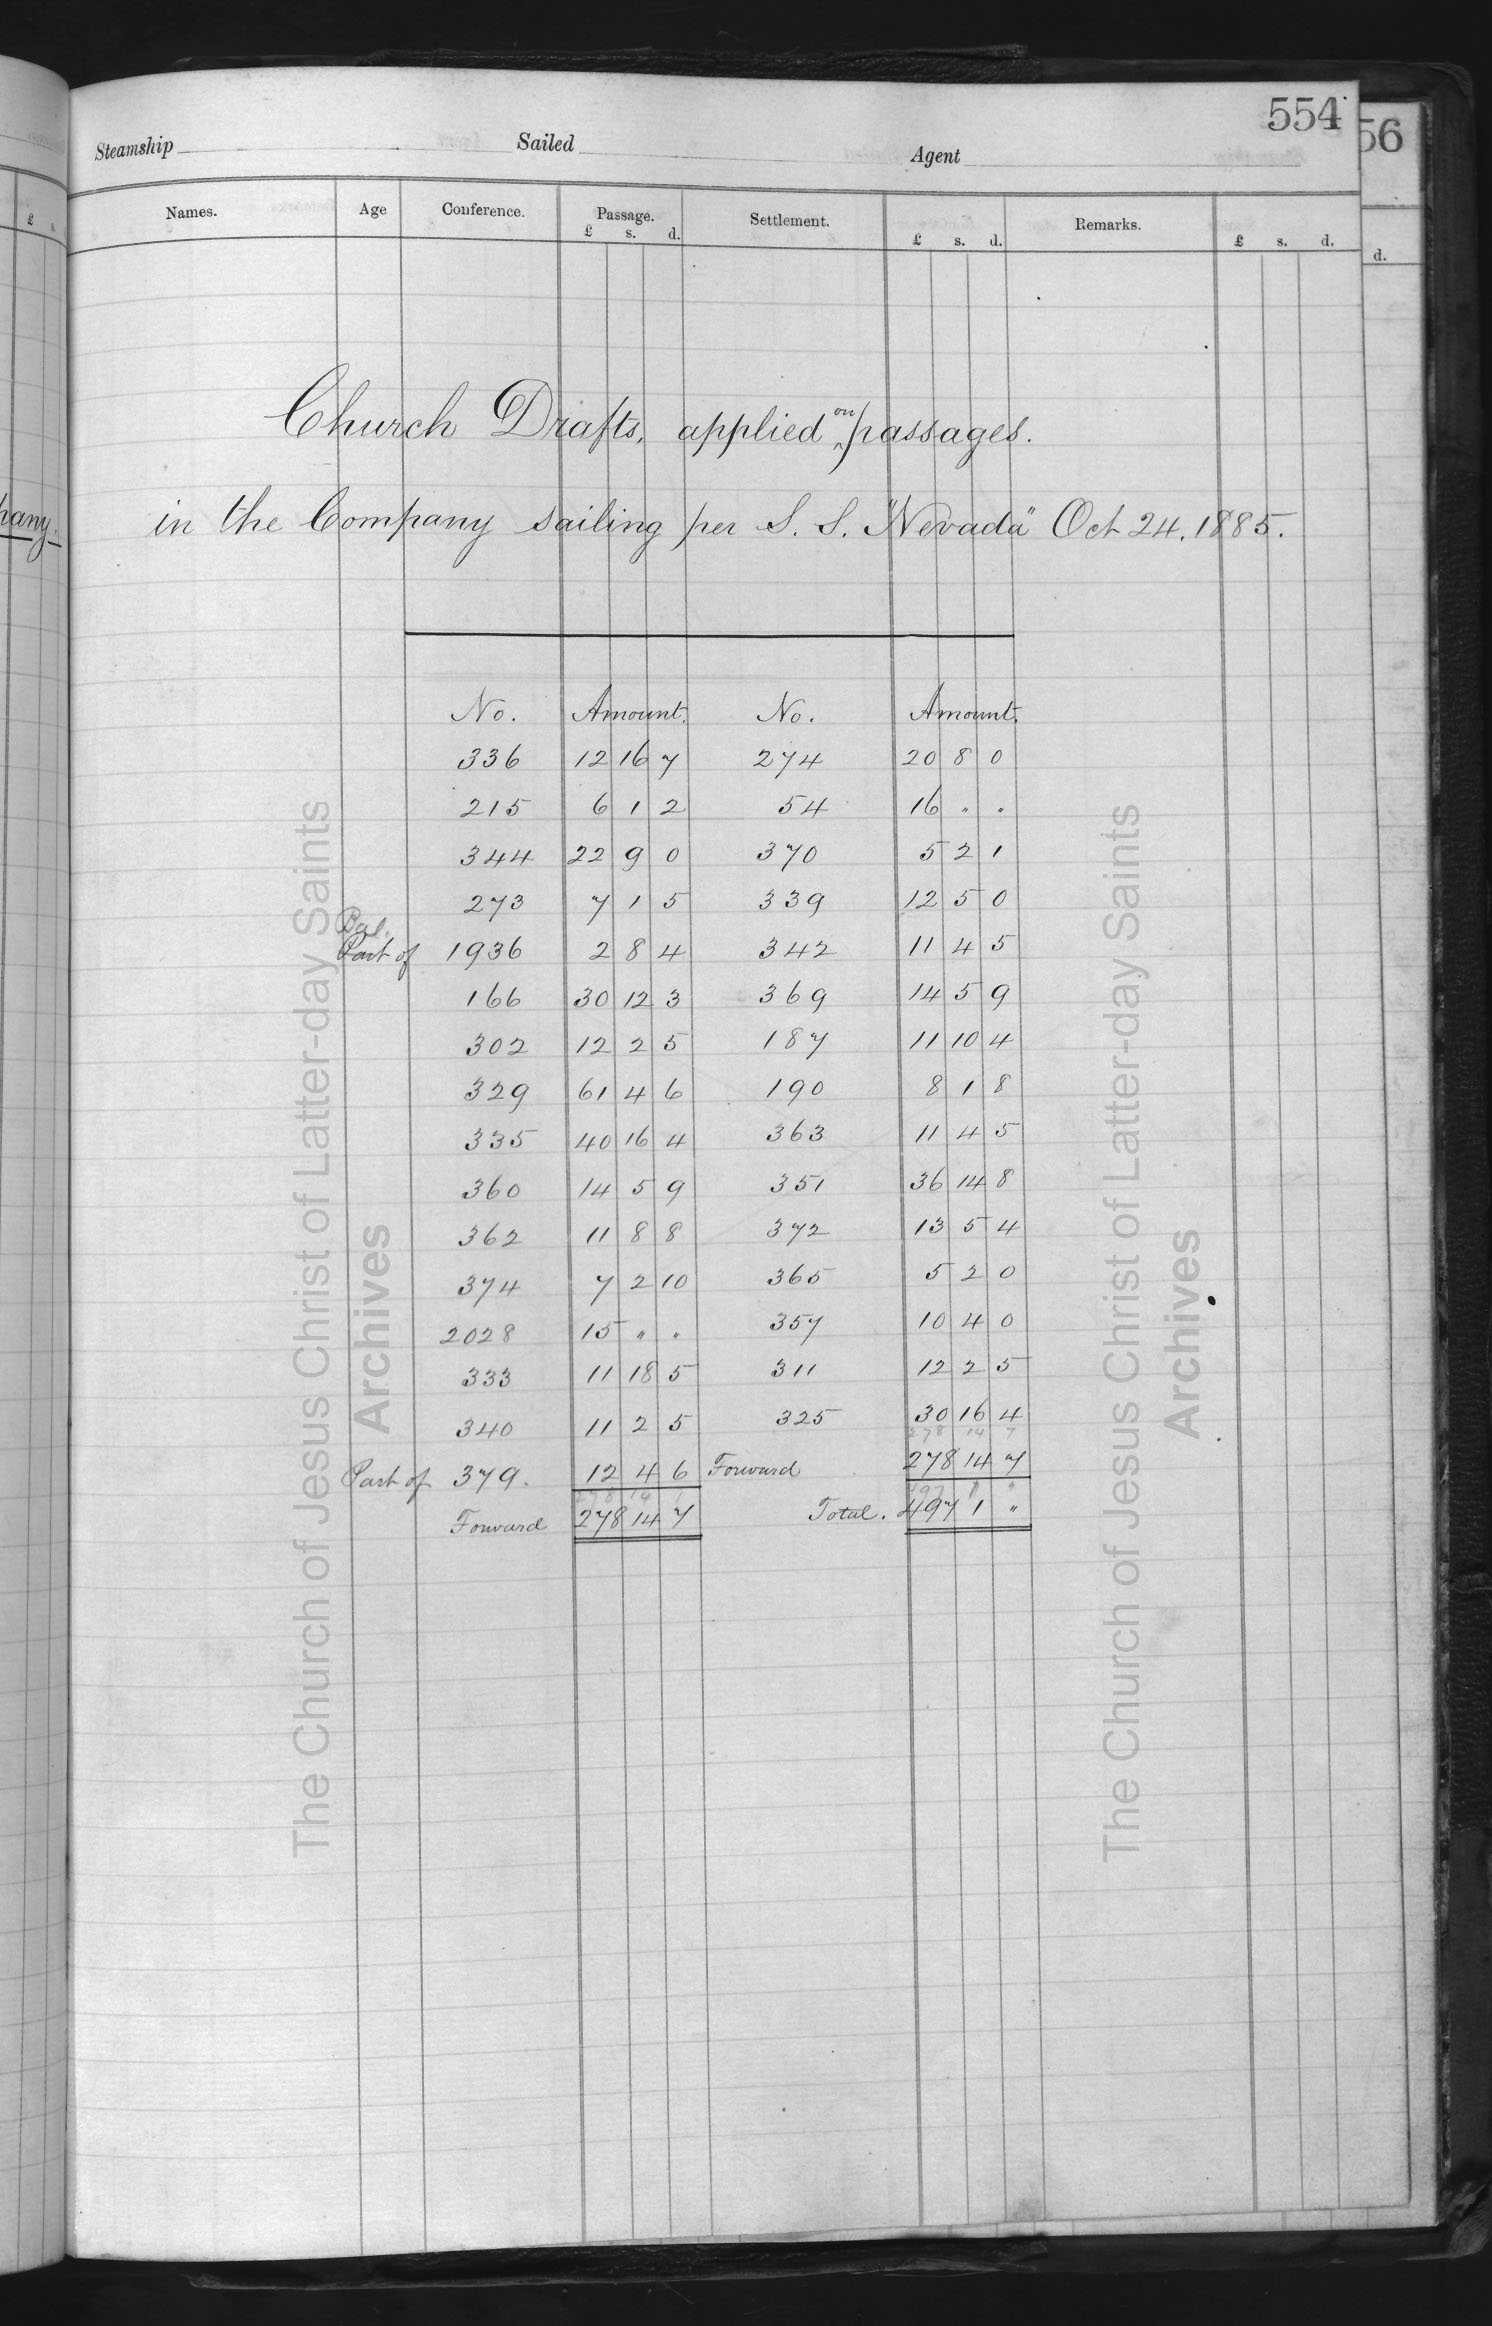 554
56
Steamship Sailed Agent
Names. Age Conference. Passage. Settlement. Remarks.
£ s. d. £ s. d. £ s. d.
£ s. d.
pany.
Church Drafts, applied on passages.
in the Company sailing per S. S. "Nevada" Oct 24. 1885.
No. Amount. No. Amount.
336 12 16 7 274 20 8 0
215 6 1 2 54 16 " "
344 22 9 0 370 5 2 1
273 7 1 5 339 12 5 0
Bal.
Part of 1936 2 8 4 342 11 4 5
166 30 12 3 369 14 5 9
302 12 2 5 187 11 10 4
329 61 4 6 190 8 1 8
335 40 16 4 363 11 4 5
360 14 5 9 351 36 14 8
362 11 8 8 372 13 5 4
374 7 2 10 365 5 2 0
2028 15 " " 357 10 4 0
333 11 18 5 311 12 2 5
340 11 2 5 325 30 16 4
278 14 7
Part of 379. 12 4 6 Forward 278 14 7
278 14 7 497 1 "
Forward 278 14 7 Total. 497 1 "
The Church of Jesus Christ of Latter-day Saints
Archives
The Church of Jesus Christ of Latter-day Saints
Archives